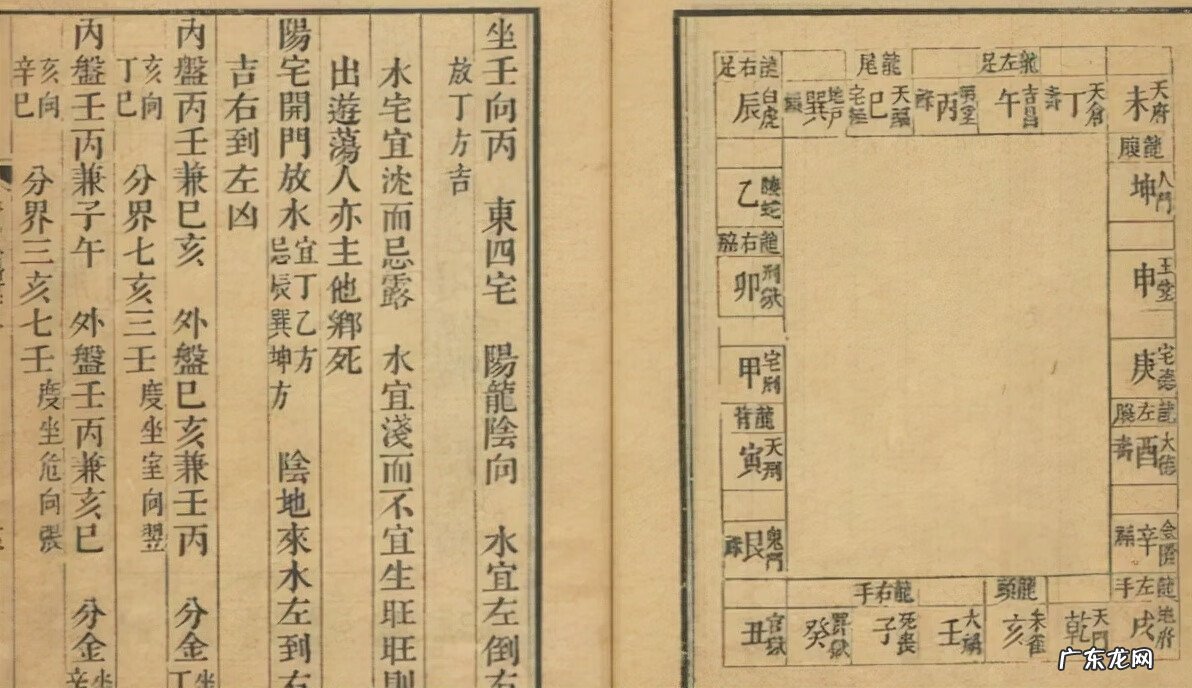 坐壬向丙　東四宅　陽龍陰向　水宜左倒右
放丁方吉
水宅宜沈而忌露　水宜淺而不宜生旺旺則
出遊蕩人亦主他鄉死
陽宅開門放水宜丁乙方忌辰巽坤方　陰地來水左到右
吉右到左凶
內盤丙壬兼巳亥　外盤巳亥兼壬丙　分金坐丁
亥向丁巳　分界七亥三壬　度坐室向翌
內盤壬丙兼子午　外盤壬丙兼亥巳　分金坐辛
亥向辛巳　分界三亥七壬　度坐危向張
龍右足
龍尾
龍左足
白虎辰
地戶巽
天福巳宅
明堂丙
吉昌午
天倉丁壽
天府未
龍腹
人門坤
玉堂申
宅德庚
龍左
大德酉壽
金匱辛福
龍左手
地府戌
天門乾
龍頭
朱雀亥
大禍壬
死喪子
龍右手
罪獄癸
官獄丑
鬼門艮
天刑寅
龍背
宅刑甲
刑獄卯
龍右脇
螣蛇乙
广东龙网